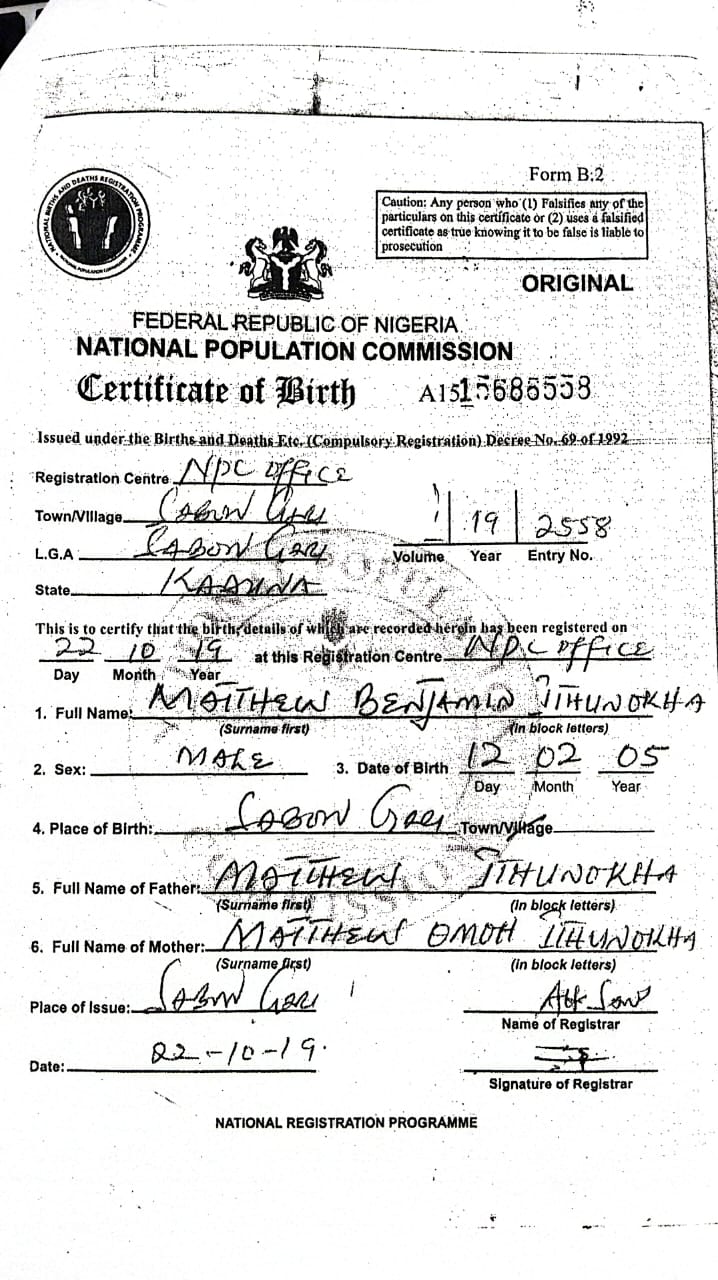 Form B:2
NATIONAL BIRTHS AND DEATHS REGISTRATION PROGRAMME
Caution: Any person who (1) Falsifies any of the
particulars on this certificate or (2) uses a falsified
certificate as true knowing it to be false is liable to
prosecution
ORIGINAL
FEDERAL REPUBLIC OF NIGERIA
NATIONAL POPULATION COMMISSION
Certificate of Birth A1515686558
Issued under the Births and Deaths Etc. (Compulsory Registration) Decree No. 69 of 1992
Registration Centre NPC OFFICE
Town/Village SABON GARI
L.G.A SABON GARI
1 19 2558
Volume Year Entry No.
State KADUNA
This is to certify that the birth, details of which are recorded herein has been registered on
22 10 19 at this Registration Centre NPC OFFICE
Day Month Year
1. Full Name: MATTHEW BENJAMIN ITHUNOKHA
(Surname first) (in block letters)
2. Sex: MALE 3. Date of Birth 12 02 05
Day Month Year
4. Place of Birth: SABON GARI Town/Village
5. Full Name of Father: MATTHEW ITHUNOKHA
(Surname first) (In block letters)
6. Full Name of Mother: MATTHEW OMOH ITHUNOKHA
(Surname first) (in block letters)
Place of Issue: SABON GARI
Name of Registrar
Date: 22-10-19.
Signature of Registrar
NATIONAL REGISTRATION PROGRAMME